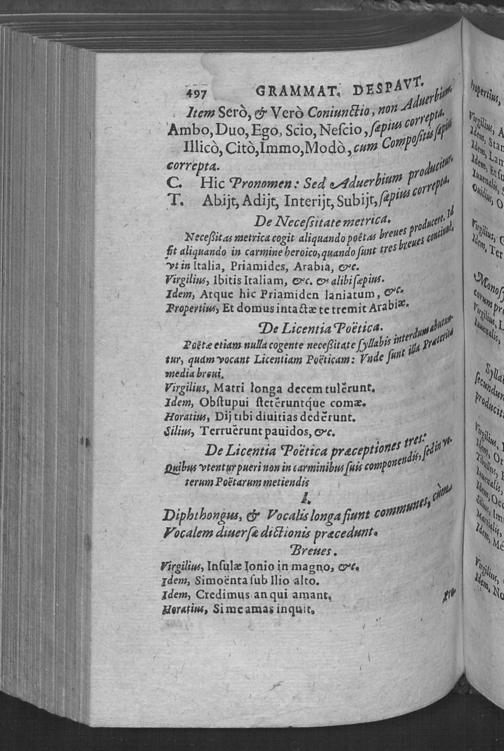 497 GRAMMAT. DESPAVT.
Item Serò, & Verò Coniunctio, non Aduerbium,
Ambo, Duo, Ego, Scio, Nescio, sæpius correpta.
Illicò, Citò, Immo, Modò, cum Compositis sæpius
correpta.
C. Hic Pronomen: Sed Aduerbium producitur.
T. Abijt, Adijt, Interijt, Subijt, sæpius correpta.
De Necessitate metrica.
Necessitas metrica cogit aliquando poëtas breues producere. Id
fit aliquando in carmine heroico, quando sunt tres breues continuæ,
vt in Italia, Priamides, Arabia, &c.
Virgilius, Ibitis Italiam, &c. & alibi sæpius.
Idem, Atque hic Priamiden laniatum, &c.
Propertius, Et domus intactæ te tremit Arabiæ.
De Licentia Poëtica.
Poëtæ etiam nulla cogente necessitate syllabis interdum abutun-
tur, quam vocant Licentiam Poëticam: Vnde sunt illa Præterita
media breui.
Virgilius, Matri longa decem tulërunt.
Idem, Obstupui stetëruntque comæ.
Horatius, Dij tibi diuitias dedërunt.
Silius, Terruërunt pauidos, &c.
De Licentia Poëtica præceptiones tres:
Quibus vtentur pueri non in carminibus suis componendis, sed in ve-
terum Poëtarum metiendis
I.
Diphthongus, & Vocalis longa fiunt communes, cùm
Vocalem diuersæ dictionis præcedunt.
Breues.
Virgilius, Insulæ Ionio in magno, &c.
Idem, Simoënta sub Ilio alto.
Idem, Credimus an qui amant.
Horatius, Si me amas inquit.